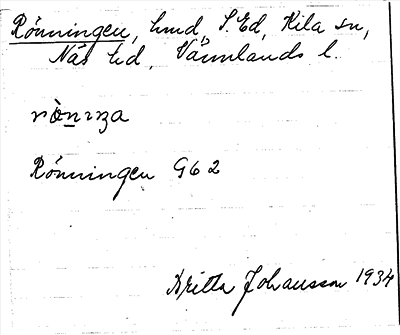 Rönningen, hmd, S. Ed, Kila sn,
Näs hd, Värmlands l.
rö̀nıŋa
Rönningen G62
Britta Johansson 1934